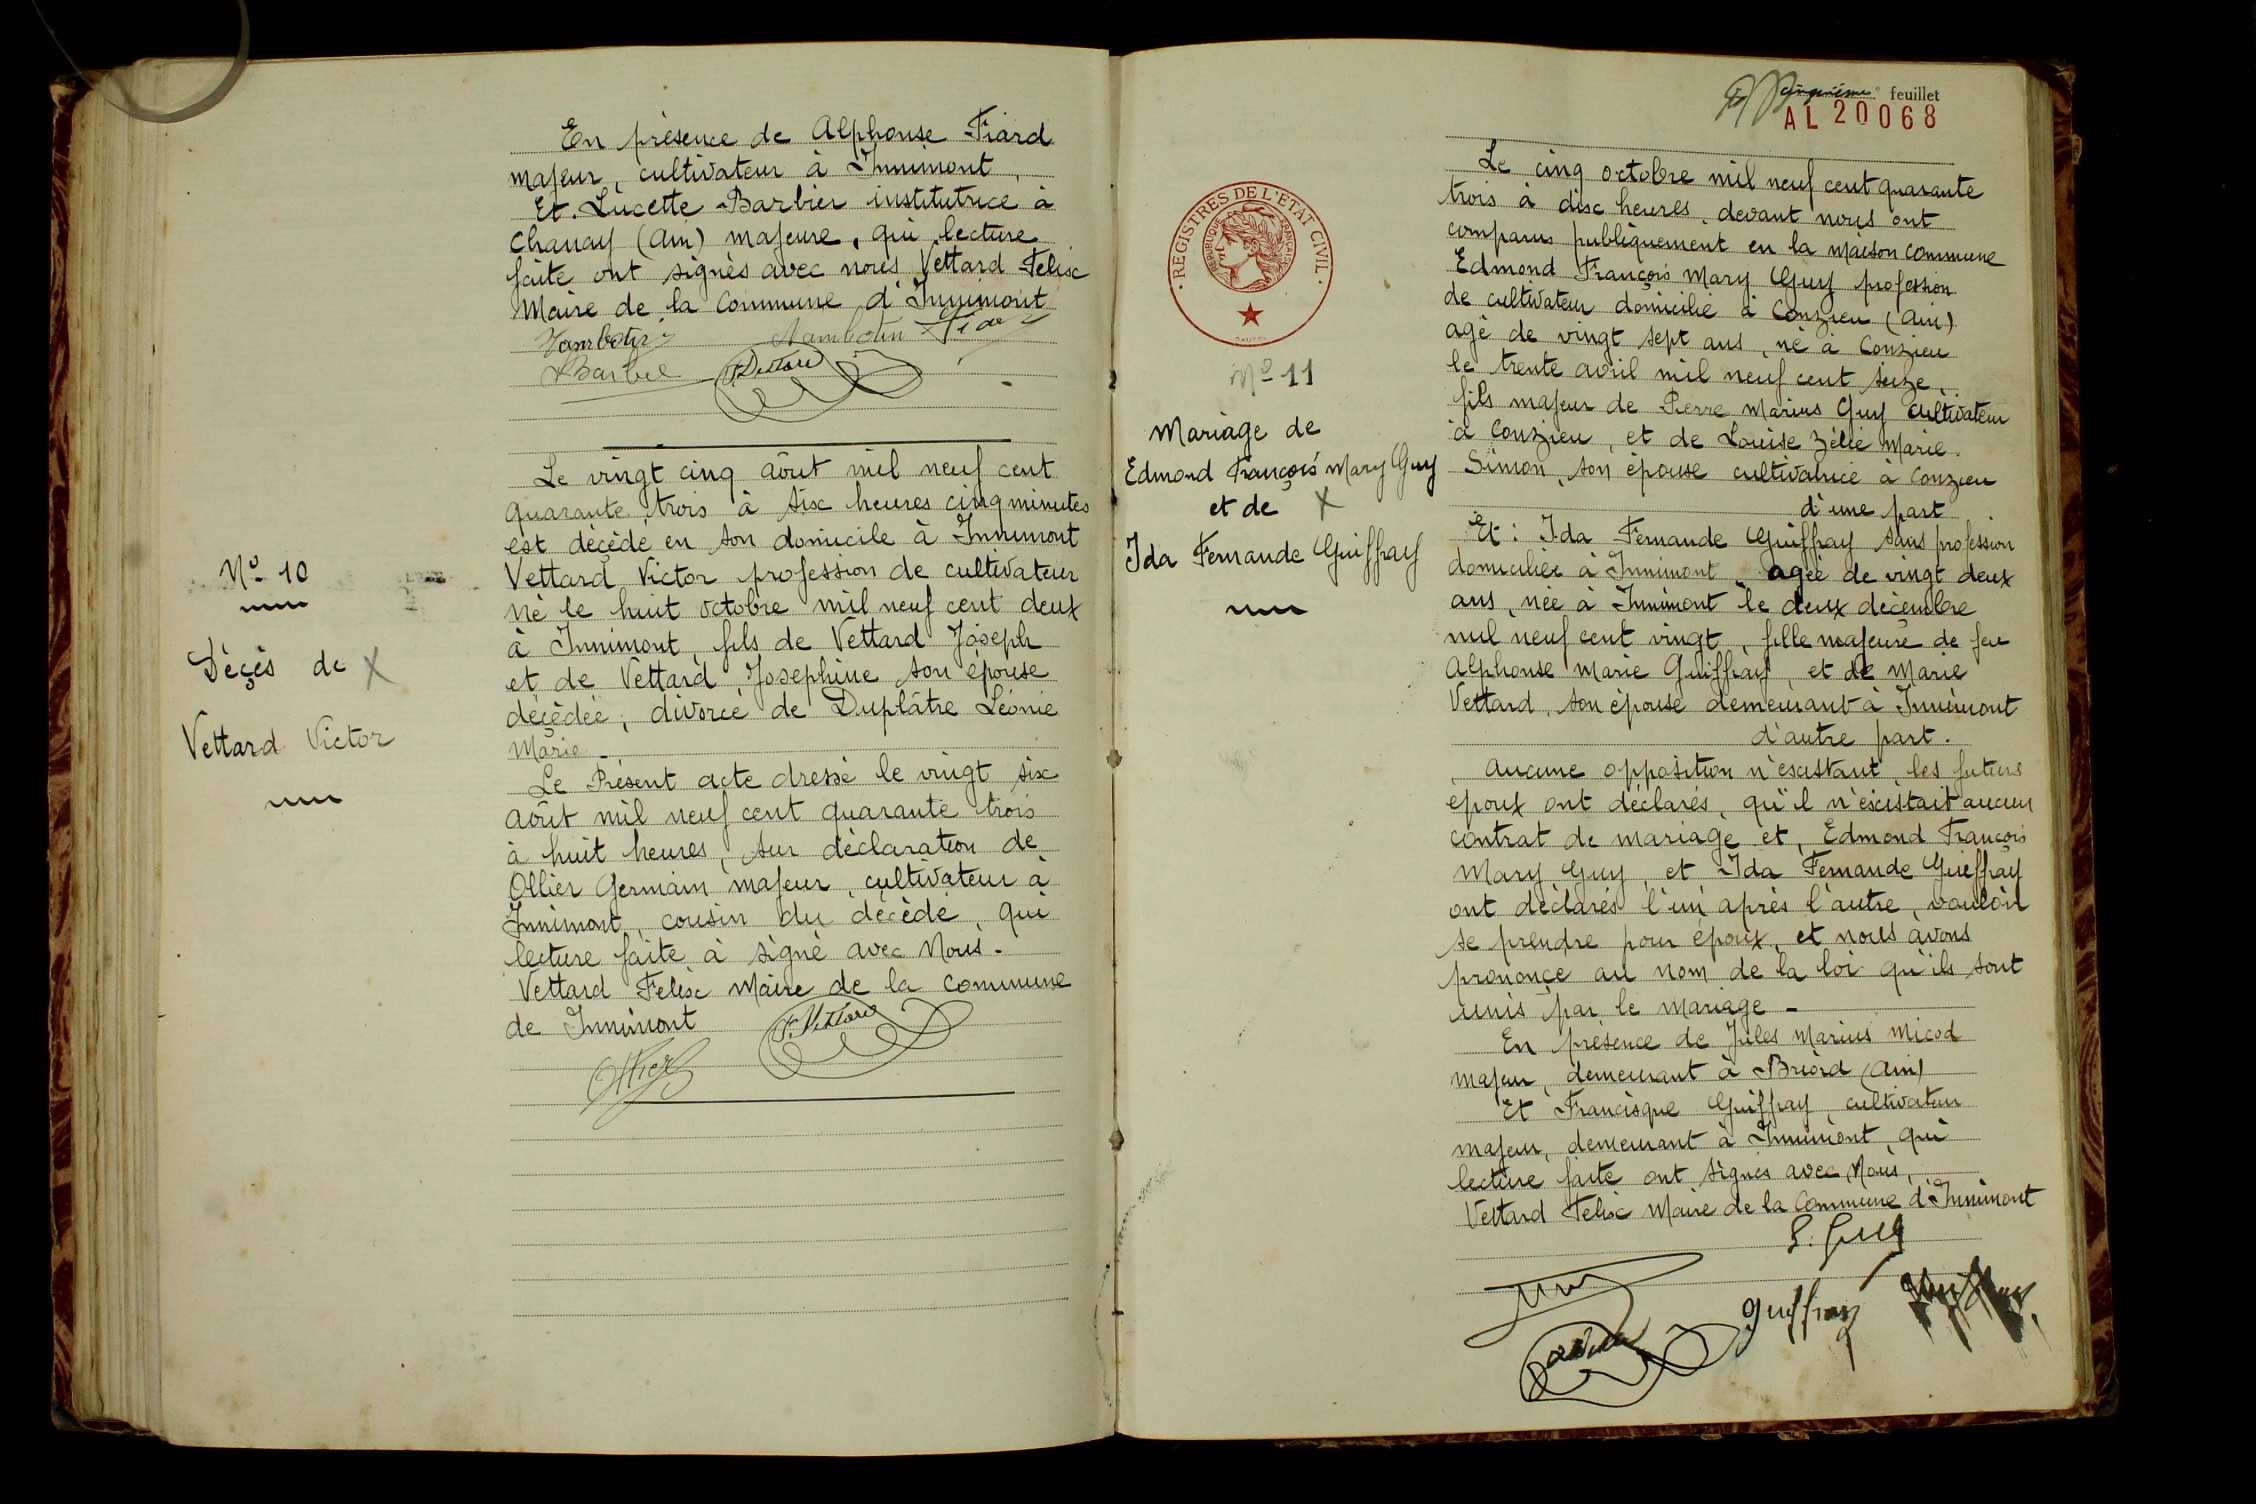 En présence de Alphonse Fiard
majeur, cultivateur à Innimont,
Et. Lucette Barbier institutrice à
Chanay (Ain) majeure, qui lecture
faite ont signés avec nous Vettard Félix
Maire de la Commune d'Innimont
Barbie
F. Vettard
Le vingt cinq âout mil neuf cent
quarante trois à six heures cinq minutes
est décédé en son domicile à Innimont
Vettard Victor profession de cultivateur
né le huit octobre mil neuf cent deux
à Innimont, fils de Vettard Joseph
et de Vettard Josephine son épouse
décédée, divorcé de Duplâtre Léonie
Marie -
Le Présent acte dressé le vingt six
août mil neuf cent quarante trois
à huit heures, sur déclaration de
Ollier Germain majeur, cultivateur à
Innimont, cousin du décédé, qui
lecture faite à signé avec Nous.
Vettard Felix Maire de la Commune
de Innimont
F. Vettard
Ollier
No 10
Dèçès de X
Vettard Victor
Cinquième feuillet
AL 20068
REGISTRES DE L'ETAT CIVIL
REPUBLIQUE FRANÇAISE
No 11
Mariage de
Edmond François Mary Guy
et de X
Ida Fernande Guiffray
Le cinq octobre mil neuf cent quarante
trois à dix heures, devant nous ont
comparus publiquement en la maison commune
Edmond François Mary Guy profession
de cultivateur domicilié à Conzieu (Ain)
agé de vingt sept ans, né à Conzieu
le trente avril mil neuf cent seize,
fils majeur de Pierre Marius Guy cultivateur
à Conzieu, et de Louise Zélie Marie
Simon, son épouse cultivatrice à Conzieu
d'une part
Et : Ida Fernande Guiffray sans profession
domiciliée à Innimont, agée de vingt deux
ans, née à Innimont le deux décembre
mil neuf cent vingt, fille majeure de feu
Alphonse Marie Guiffray, et de Marie
Vettard, son épouse demeurant à Innimont
d'autre part.
Aucune opposition n'existant, les futurs
époux ont déclarés, qu'il n'existait aucun
contrat de mariage et, Edmond François
Mary Guy, et Ida Fernande Guiffray
ont déclarés l'un après l'autre, vouloir
se prendre pour époux, et nous avons
prononçe au nom de la loi qu'ils sont
unis par le mariage -
En présence de Jules Marius Micod
majeur, demeurant à Briord (Ain)
Et Francisque Guiffray, cultivateur
majeur, demeurant à Innimont, qui
lecture faite ont signés avec Nous,
Vettard Felix Maire de la Commune d'Innimont
E. Guy
Guiffray